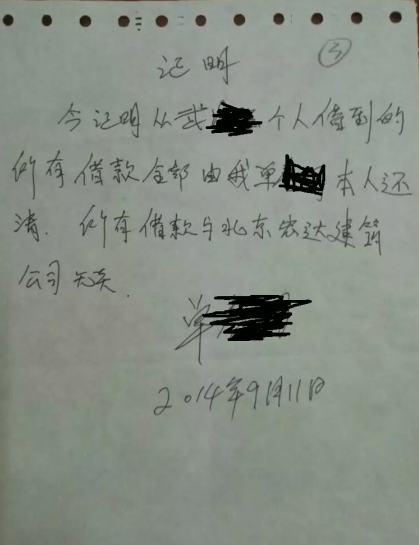 ③
证明
今证明从武 个人借到的
所有借款全部由我单 本人还
清. 所有借款与北京宏达建筑
公司无关.
单
2014年9月11日